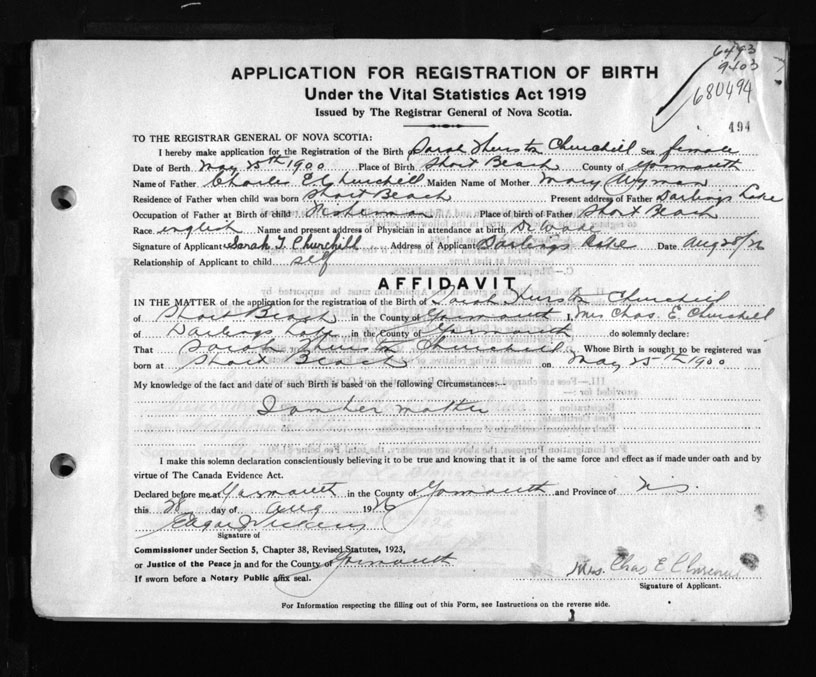 6493
9403
680494
494
APPLICATION FOR REGISTRATION OF BIRTH
Under the Vital Statistics Act 1919
Issued by The Registrar General of Nova Scotia.
TO THE REGISTRAR GENERAL OF NOVA SCOTIA:
I hereby make application for the Registration of the Birth Sarah Thurston Churchill Sex female
Date of Birth May 25th 1900 Place of Birth Short Beach County of Yarmouth
Name of Father Charles E Churchill Maiden Name of Mother Mary Wyman
Residence of Father when child was born Short Beach Present address of Father Darlings Lake
Occupation of Father at Birth of child Fisherman Place of birth of Father Short Beach
Race english Name and present address of Physician in attendance at birth Dr Wade
Signature of Applicant Sarah T. Churchill Address of Applicant Darlings Lake Date Aug 28/26
Relationship of Applicant to child self
AFFIDAVIT
IN THE MATTER of the application for the registration of the Birth of Sarah Thurston Churchill
of Short Beach in the County of Yarmouth I, Mrs Chas. E. Churchill
of Darlings Lake in the County of Yarmouth do solemnly declare:
That Sarah Thurston Churchill Whose Birth is sought to be registered was
born at Short Beach on May 25th 1900
My knowledge of the fact and date of such Birth is based on the following Circumstances:--
I am her mother
I make this solemn declaration conscientiously believing it to be true and knowing that it is of the same force and effect as if made under oath and by
virtue of The Canada Evidence Act.
Declared before me at Yarmouth in the County of Yarmouth and Province of N.S.
this 28 day of Aug 1926
Signature of
Commissioner under Section 5, Chapter 38, Revised Statutes, 1923,
or Justice of the Peace in and for the County of Yarmouth
If sworn before a Notary Public affix seal.
Mrs. Chas E Churchill
Signature of Applicant.
For Information respecting the filling out of this Form, see Instructions on the reverse side.